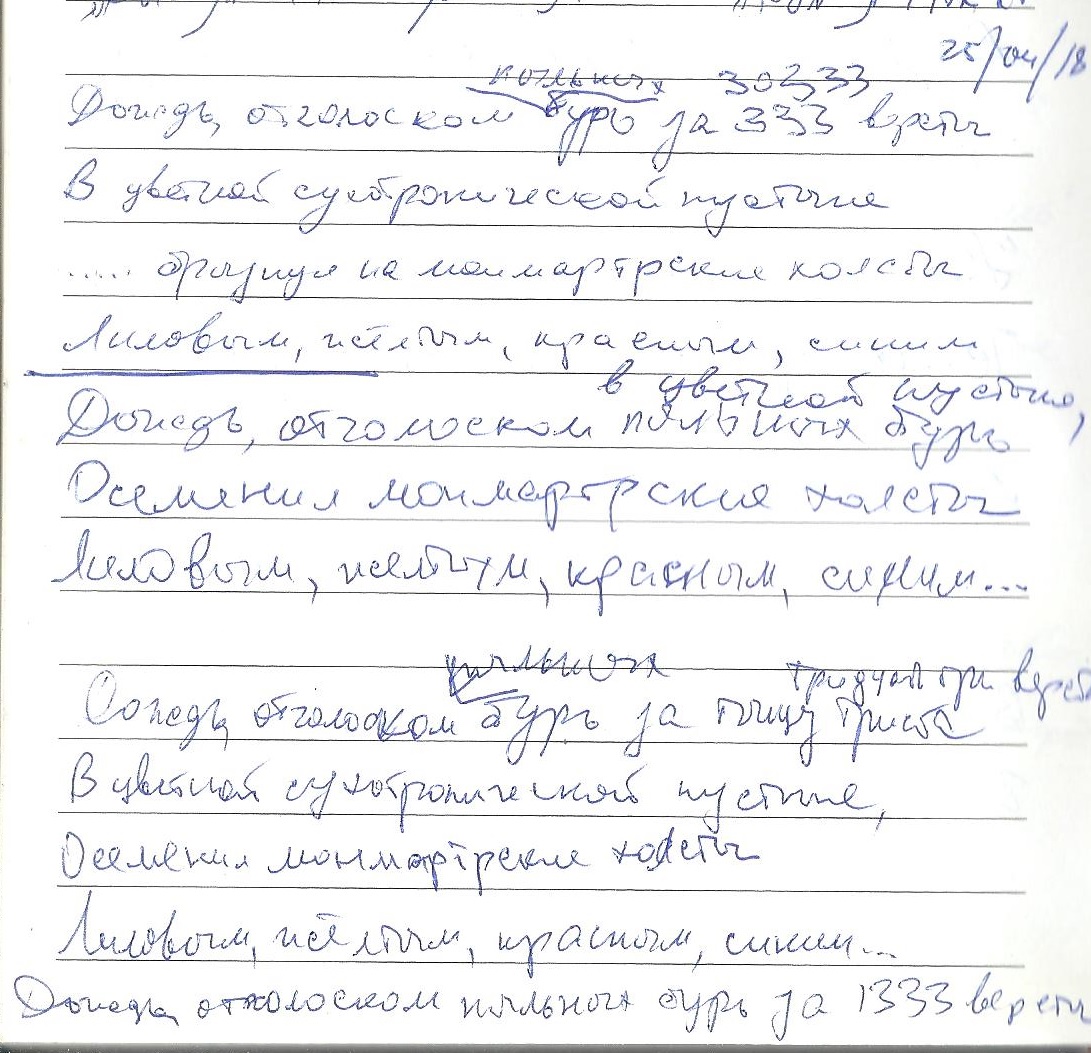 25/04/18
пыльных 30333
Дождь, отголоском бурь за 333 версты
В цветной сухотропической пустыне
..... брызнул на монмартрские холсты
Лиловым, жёлтым, красным, синим
в цветной пустыне,
Дождь, отголоском пыльных бурь
Осеменил монмартрские холсты
Лиловым, жёлтым, красным, синим...
пыльных тридцать три верст
Дождь, отголоском бурь за тыщу триста
В цветной сухотропической пустыне,
Осеменил монмартрские холсты
Лиловым, жёлтым, красным, синим...
Дождь, отголоском пыльных бурь за 1333 версты